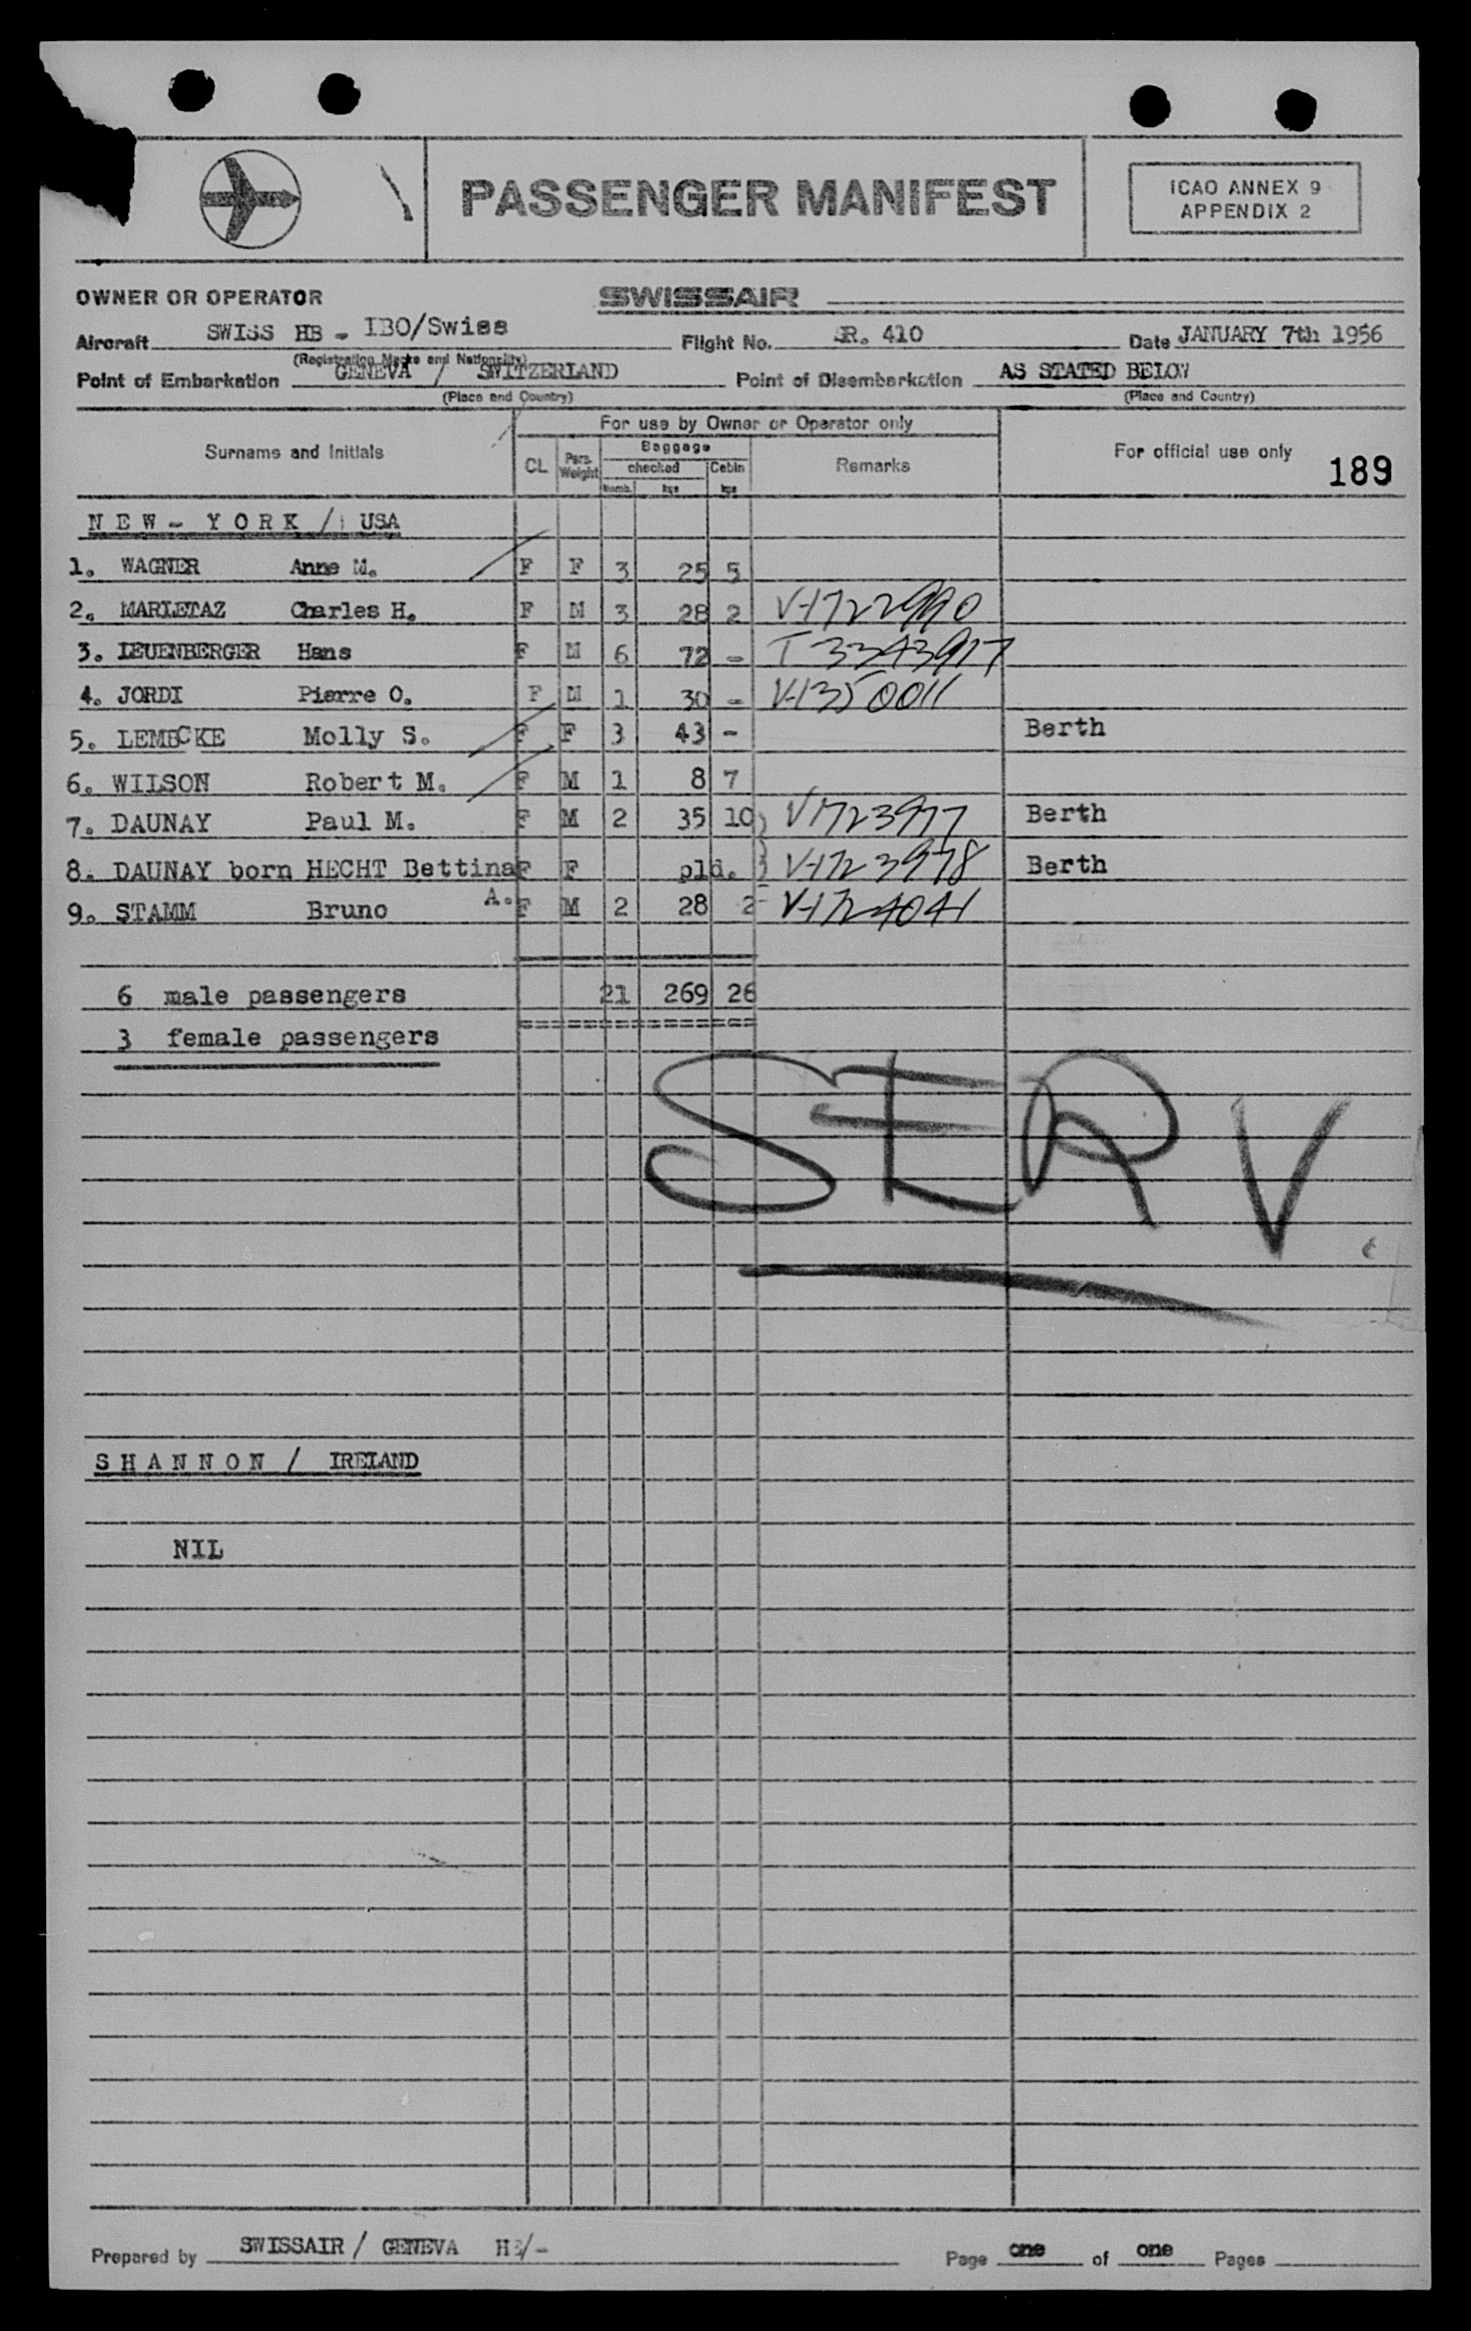 PASSENGER MANIFEST
ICAO ANNEX 9
APPENDIX 2
OWNER OR OPERATOR SWISSAIR
Aircraft SWISS HB - IBO/Swiss Flight No. SR. 410 Date JANUARY 7th 1956
(Registration Marks and Nationality)
Point of Embarkation GENEVA / SWITZERLAND Point of Disembarkation AS STATED BELOW
(Place and Country) (Place and Country)
For use by Owner or Operator only
Surnams and Initials CL Pers. Weight Baggage Remarks For official use only 189
checked Cabin
Numb. kgs kgs
NEW - YORK / USA
1. WAGNER Anne M. F F 3 25 5
2. MARIETAZ Charles H. F M 3 28 2 V-1722990
3. LEUENBERGER Hans F M 6 72 - T 3343917
4. JORDI Pierre O. F M 1 30 - V-1350011
5. LEMBCKE Molly S. F F 3 43 - Berth
6. WILSON Robert M. F M 1 8 7
7. DAUNAY Paul M. F M 2 35 10 ) V1723977 Berth
8. DAUNAY born HECHT Bettina F F pld. ) V-1723978 Berth
9. STAMM Bruno A. F M 2 28 2 V-1724041
6 male passengers 21 269 26
3 female passengers
SERV.
SHANNON / IRELAND
NIL
Prepared by SWISSAIR / GENEVA HB/- Page one of one Pages